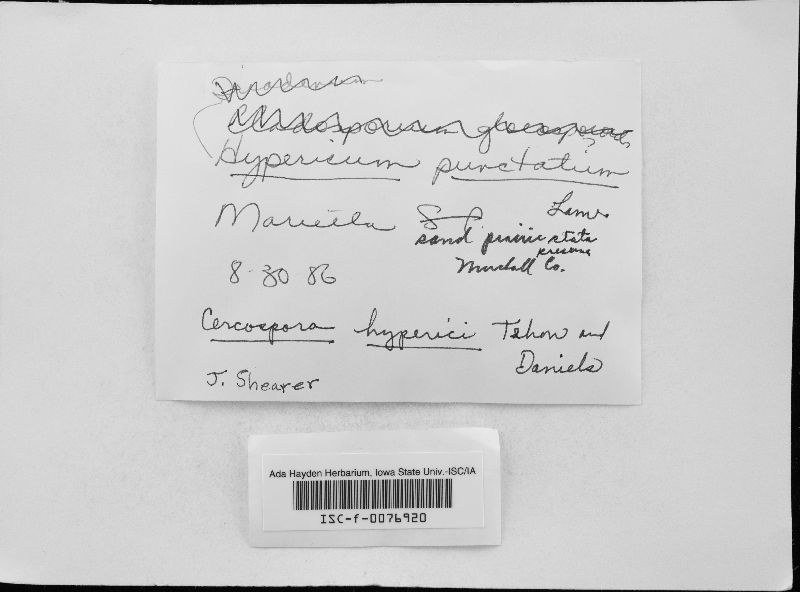 Cladosporium gloeosporioides
Hypericum punctatum
Lam.
Marietta S P
sand prairie state
preserve
8-30 86
Marshall Co.
Cercospora hyperici Tehon and
Daniels
J. Shearer
Ada Hayden Herbarium, Iowa State Univ.-ISC/IA
ISC-f-0076920